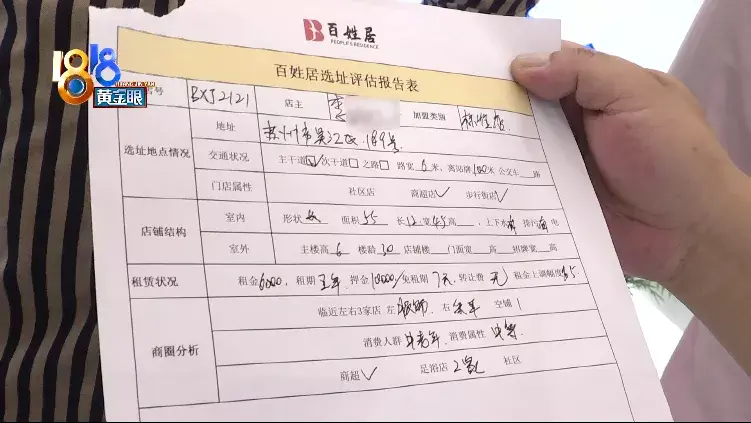 1818
黄金眼
百姓居
PEOPLE'S RESIDENCE
百姓居选址评估报告表
号 BXJ2121 店主 李 加盟类别 标准店
选址地点情况
地址 苏州市吴江区 189号
交通状况 主干道☑次干道□之路□ 路宽6米,离站牌100米 公交车__路
门店属性 社区店 商超店✓ 步行街店✓
店铺结构
室内 形状 面积55 长12宽4.5高__,上下水有 排污有 电
室外 主楼高6 楼龄30 店铺楼__门面宽__高__招牌宽__高
租赁状况 租金6000,租期三年,押金10000/免租期7天,转让费无)租金上调幅度
商圈分析
临近左右3家店 左 右 空铺
消费人群 中青年,消费属性 中等.
商超✓ 足浴店 2家 社区